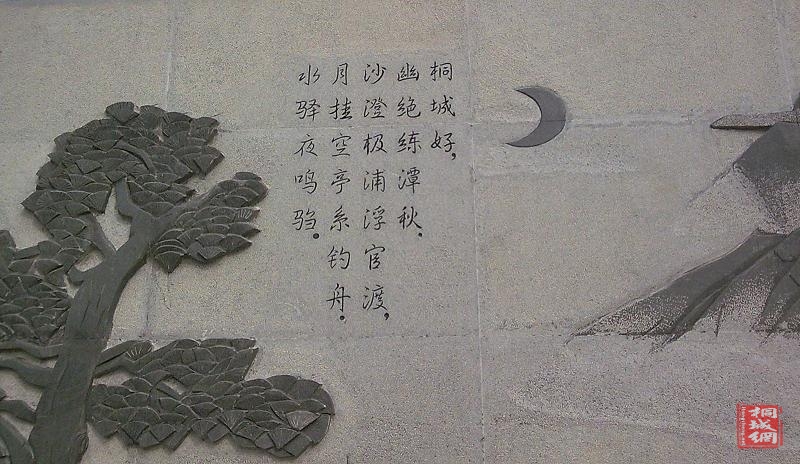 桐城好，
幽绝练潭秋，
沙澄极浦浮官渡，
月挂空亭系钓舟。
水驿夜鸣驺。
桐城網